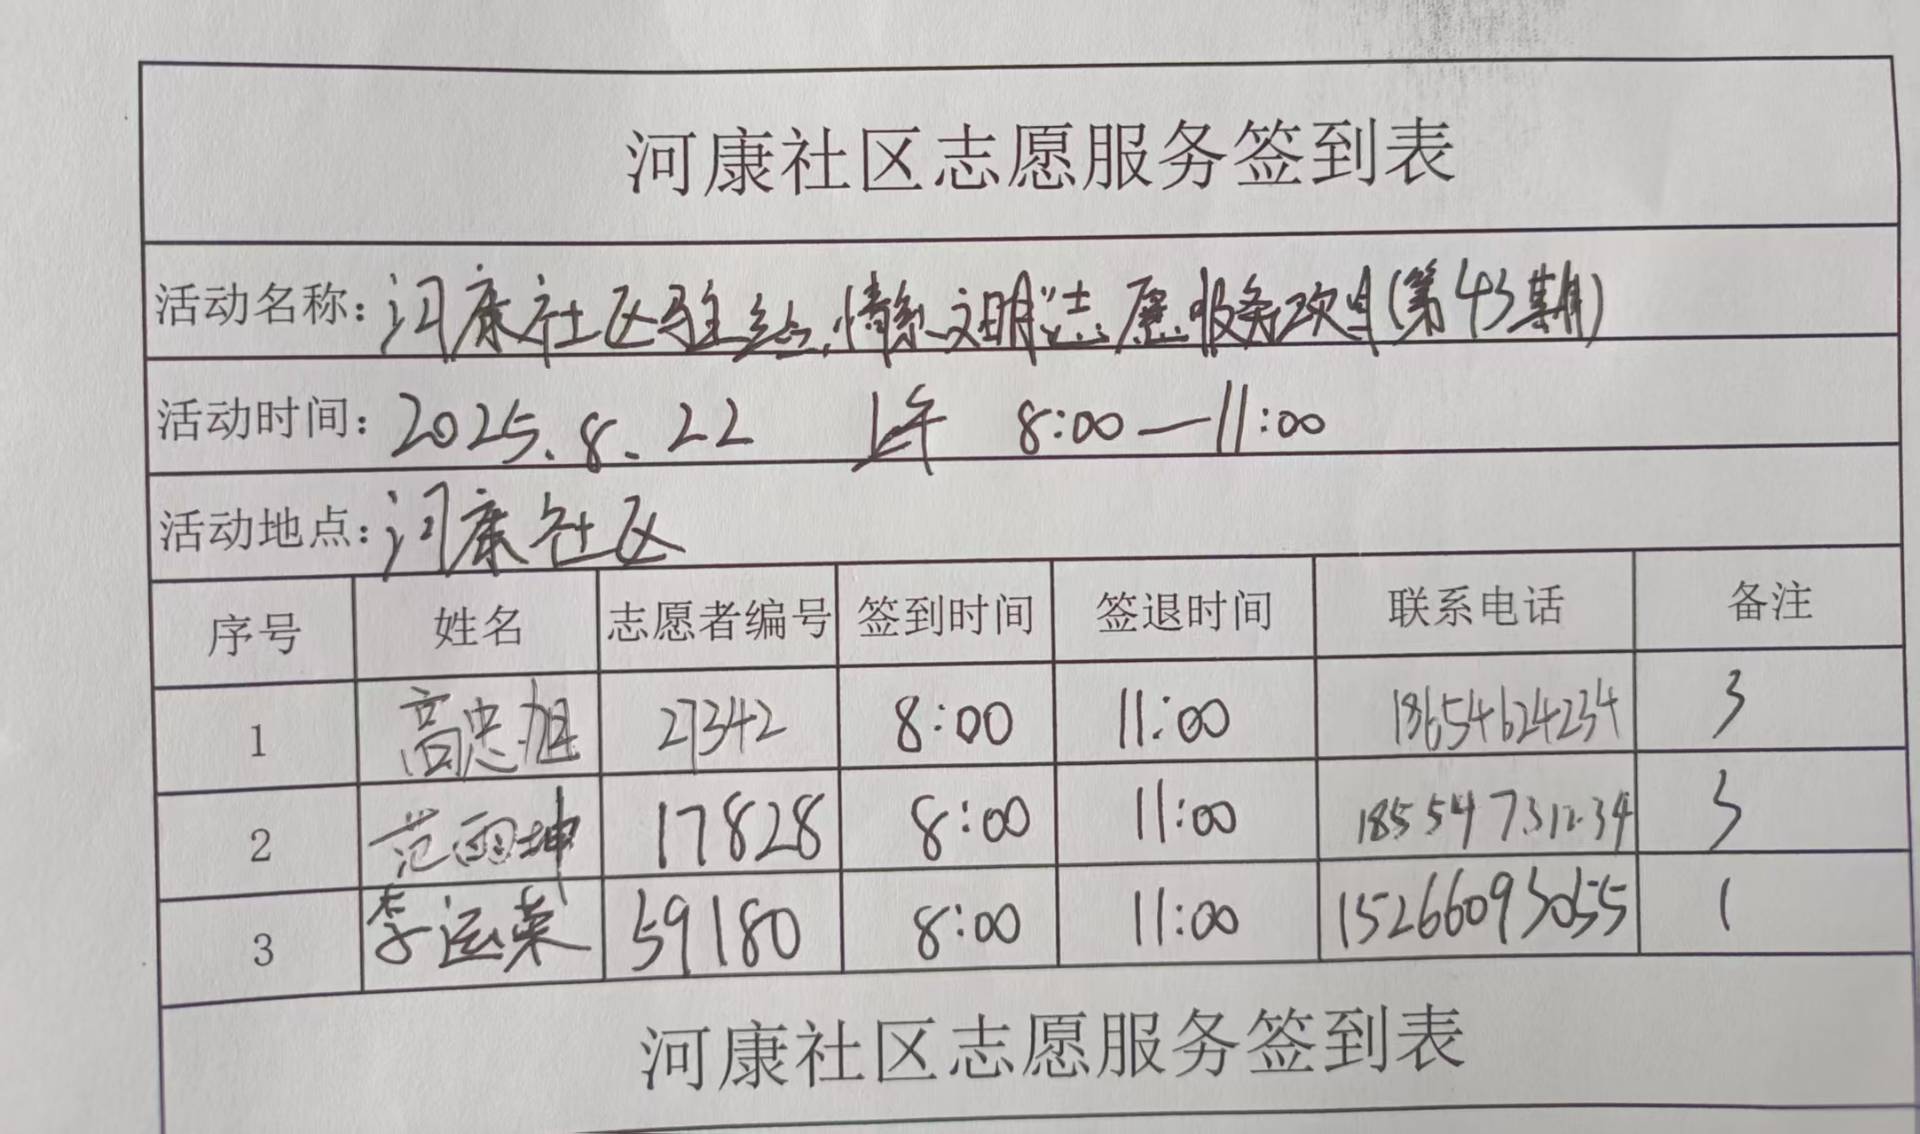 河康社区志愿服务签到表
活动名称：河康社区"驻红,情系文明"志愿服务项目(第43期)
活动时间：2025.8.22 上午 8:00—11:00
活动地点：河康社区
序号 姓名 志愿者编号 签到时间 签退时间 联系电话 备注
1 高忠旭 27342 8:00 11:00 18654624234 3
2 范雨坤 17828 8:00 11:00 18554731234 3
3 李运荣 59180 8:00 11:00 15266093055 1
河康社区志愿服务签到表